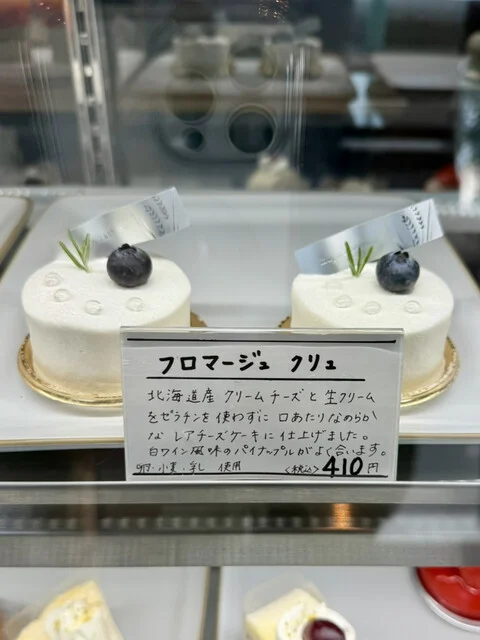 フロマージュ クリュ
北海道産 クリームチーズと生クリーム
をゼラチンを使わずに 口あたりなめらか
な レアチーズケーキに仕上げました。
白ワイン風味のパイナップルがよく合います。
卵・小麦・乳 使用 <税込> 410円